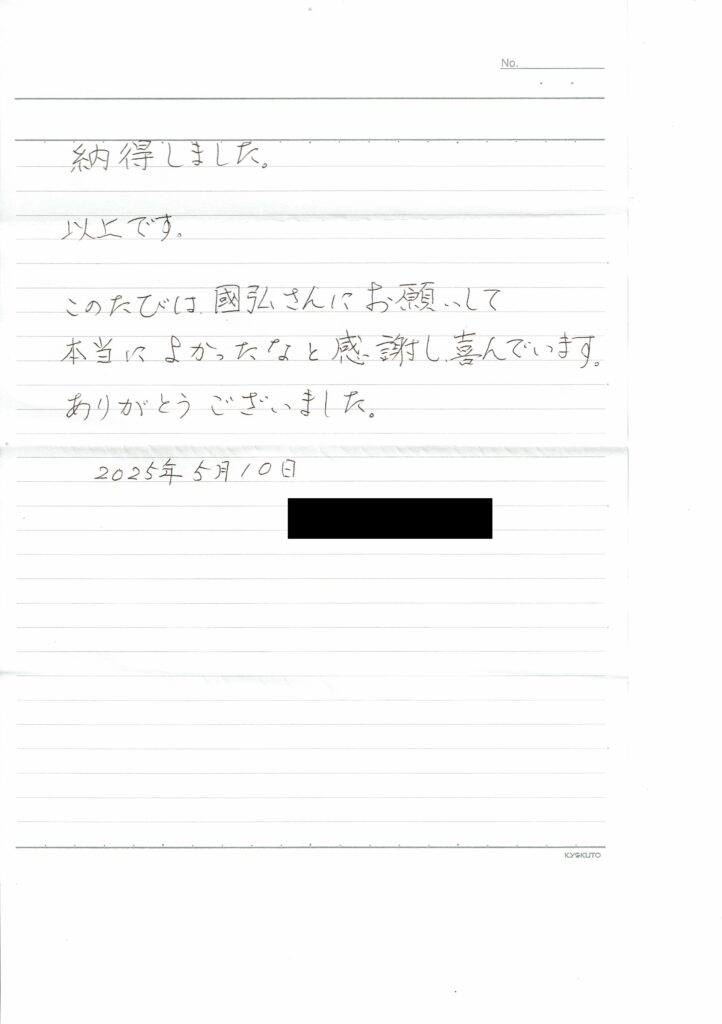 No.
納得しました。
以上です。
このたびは、國弘さんにお願いして
本当によかったなと感謝し、喜んでいます。
ありがとうございました。
2025年5月10日
KYOKUTO